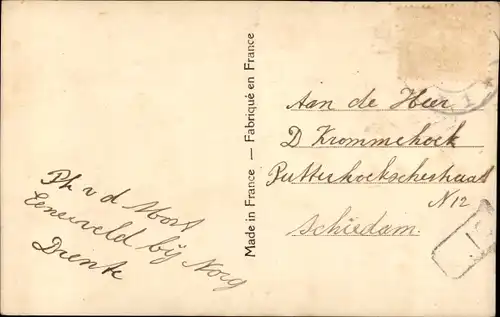 Ph v d Moost
Eeneveld bij Norg
Drente
Made in France — Fabriqué en France
Aan de Heer
D Krommehoek
Putterhoekschestraat
N 12
Schiedam.